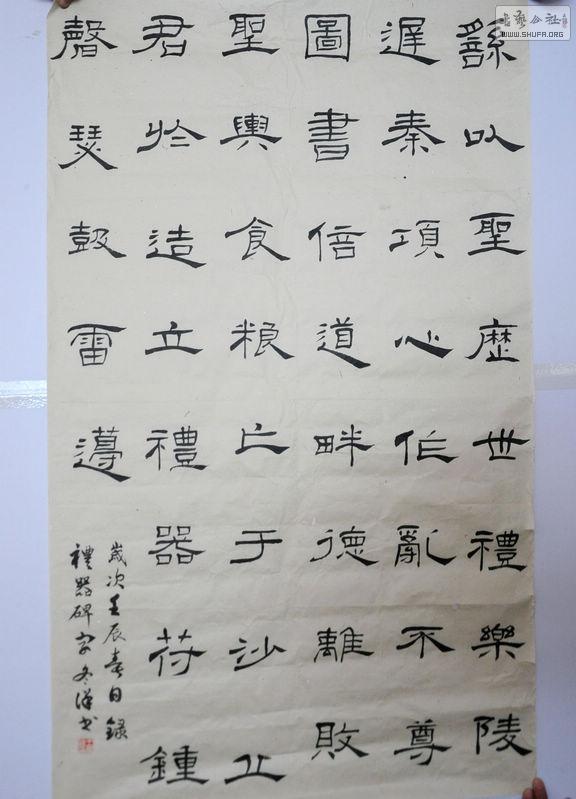 書藝公社
WWW.SHUFA.ORG
繇以聖歷世禮樂陵
遲秦項心作亂不尊
圖書倍道畔德離敗
聖輿食粮亡于沙丘
君於造立禮器苻鍾
磬瑟鼓雷
歲次壬辰春日錄
禮器碑字冬